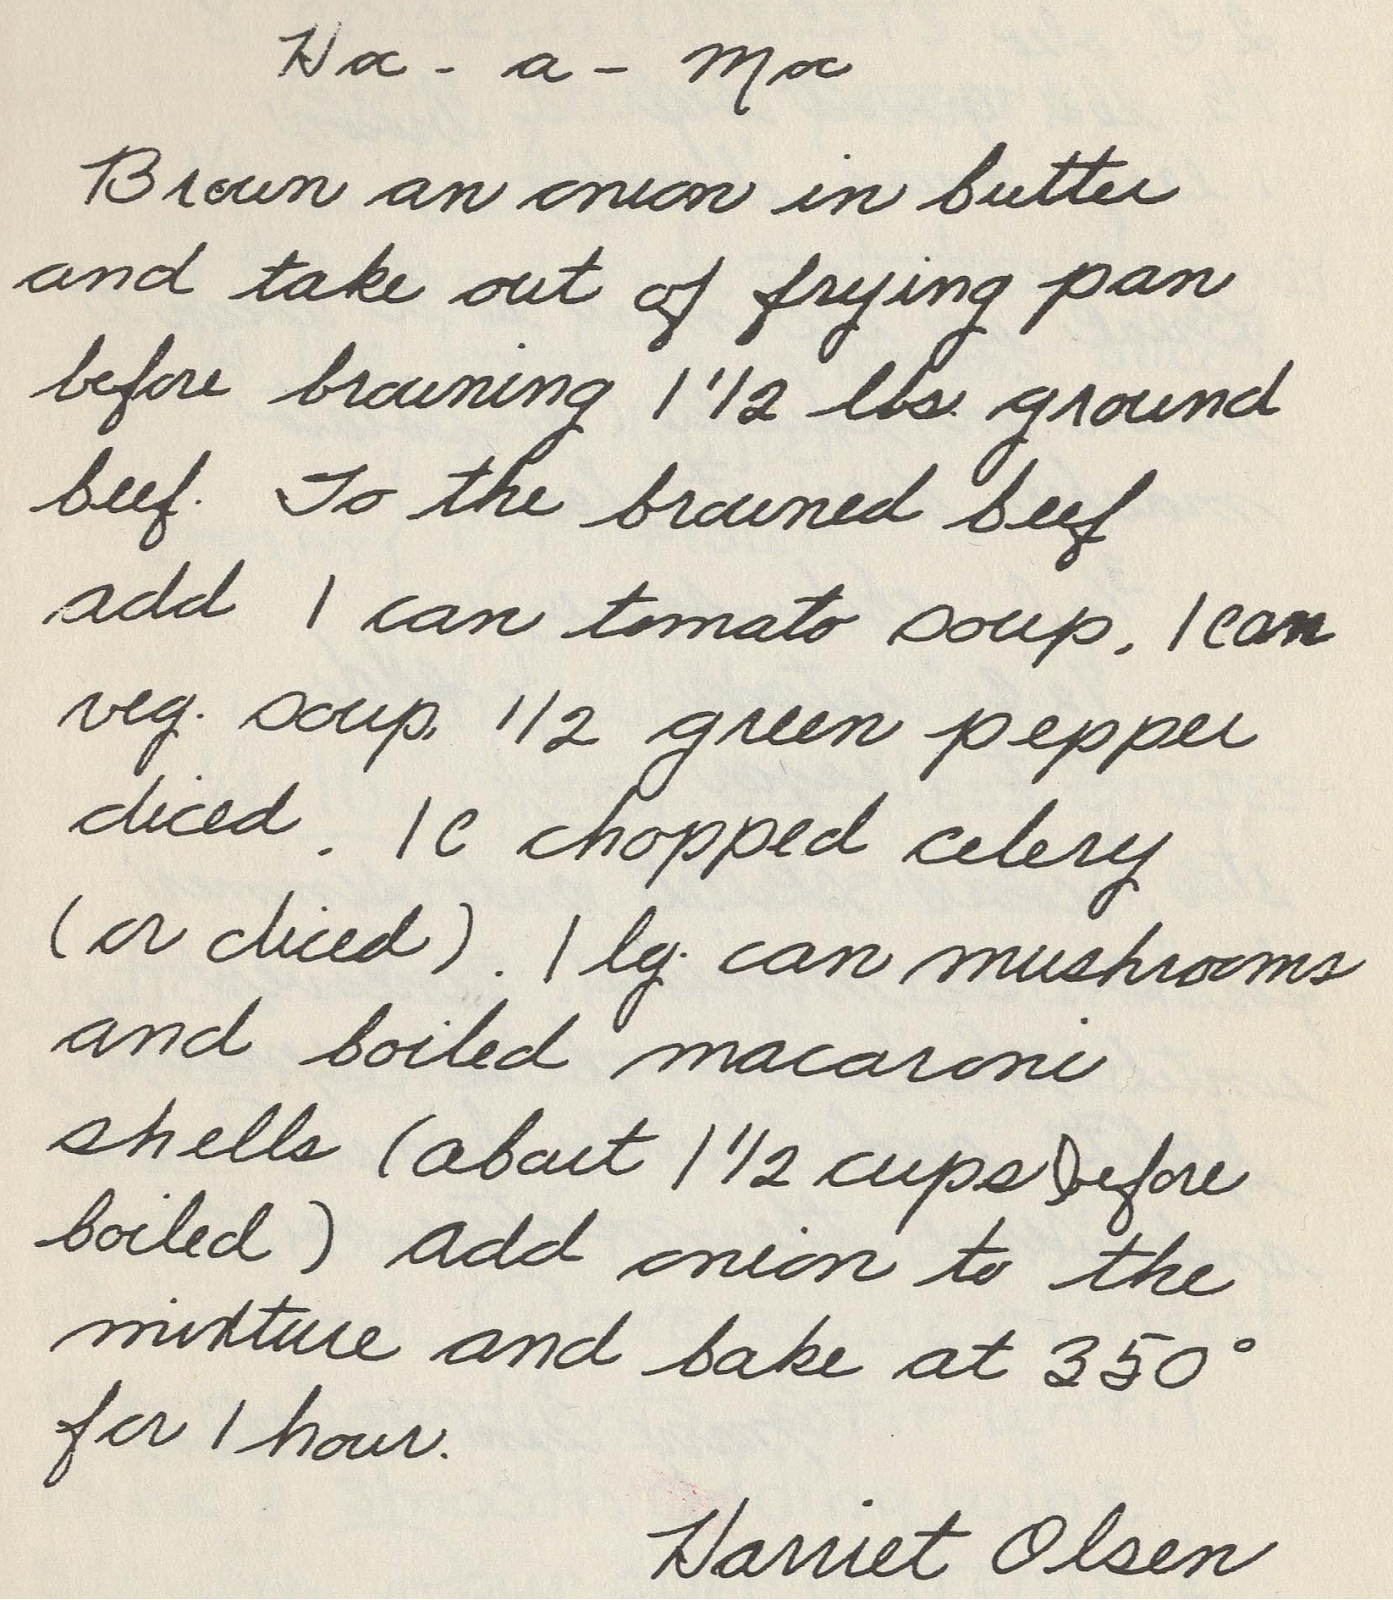 Hx - a - Mx
Brown an onion in butter
and take out of frying pan
before browning 1 1/2 lbs. ground
beef. To the browned beef
add 1 can tomato soup. 1 can
veg. soup. 1/2 green pepper
diced. 1 c chopped celery
(or diced). 1 lg. can mushrooms
and boiled macaroni
shells (about 1 1/2 cups before
boiled) add onion to the
mixture and bake at 350°
for 1 hour.
Harriet Olsen